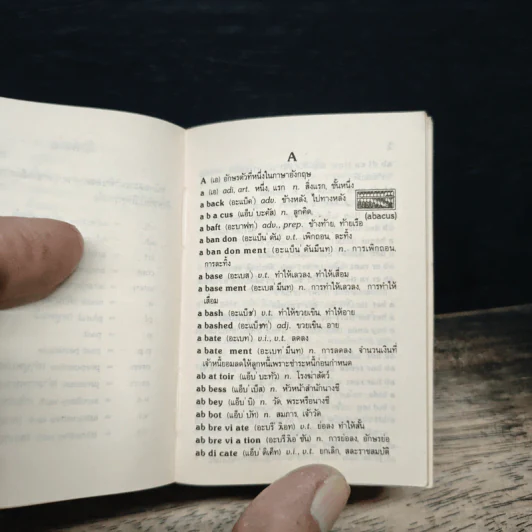 A
A (เอ) อักษรตัวที่หนึ่งในภาษาอังกฤษ
a (เอ) adj. art. หนึ่ง, แรก n. สิ่งแรก, ชั้นหนึ่ง
a back (อะแบ็ค') adv. ข้างหลัง, ไปทางหลัง
ab a cus (แอ็บ' บะคัส) n. ลูกคิด,
(abacus)
a baft (อะบาฟท') adv., prep. ข้างท้าย, ท้ายเรือ
a ban don (อะแบ็น' ดัน) v.t. เพิกถอน, ละทิ้ง
a ban don ment (อะแบ็น' ดันมึนท) n. การเพิกถอน,
การละทิ้ง
a base (อะเบส') v.t. ทำให้เลวลง, ทำให้เสื่อม
a base ment (อะเบส' มึนท) n. การทำให้เลวลง, การทำให้
เสื่อม
a bash (อะแบ็ช') v.t. ทำให้ขวยเขิน, ทำให้อาย
a bashed (อะแบ็ชท') adj. ขวยเขิน, อาย
a bate (อะเบท') v.i., v.t. ลดลง
a bate ment (อะเบท' มึนท) n. การลดลง, จำนวนเงินที่
เจ้าหนี้ยอมลดให้ลูกหนี้เพราะชำระหนี้ก่อนกำหนด
ab at toir (แอ็บ' บะทัว) n. โรงฆ่าสัตว์
ab bess (แอ็บ' เบ็ส) n. หัวหน้าสำนักนางชี
ab bey (แอ็บ' บิ) n. วัด, พระหรือนางชี
ab bot (แอ็บ' บัท) n. สมภาร, เจ้าวัด
ab bre vi ate (อะบรี' วิเอท) v.t. ย่อลง ทำให้สั้น
ab bre vi a tion (อะบรีวิเอ' ชัน) n. การย่อลง, อักษรย่อ
ab di cate (แอ็บ' ดิเค็ท) v.i., v.t. ยกเลิก, สละราชสมบัติ